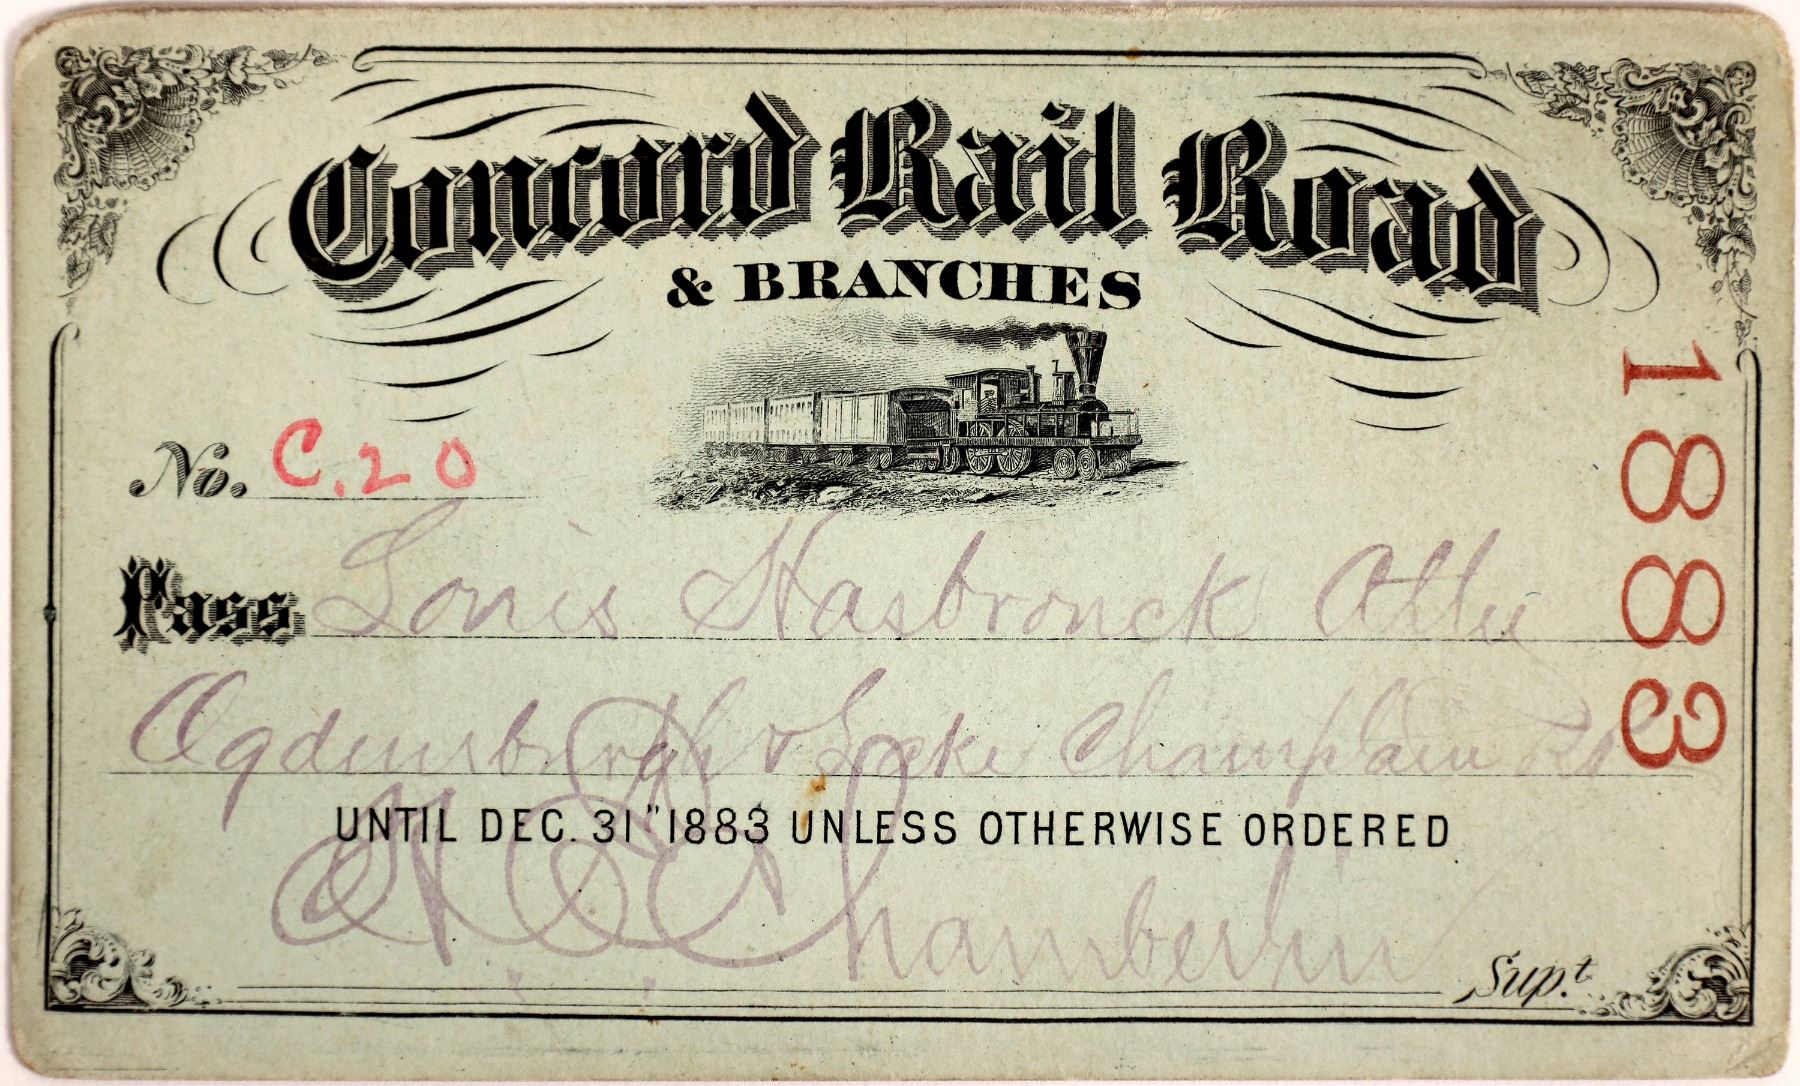 Concord Rail Road
& BRANCHES
1883
No. C. 20
Pass Louis Hasbrouck Atty
Ogdensburgh & Lake Champlain RR
UNTIL DEC. 31" 1883 UNLESS OTHERWISE ORDERED
Chamberlin Sup.t